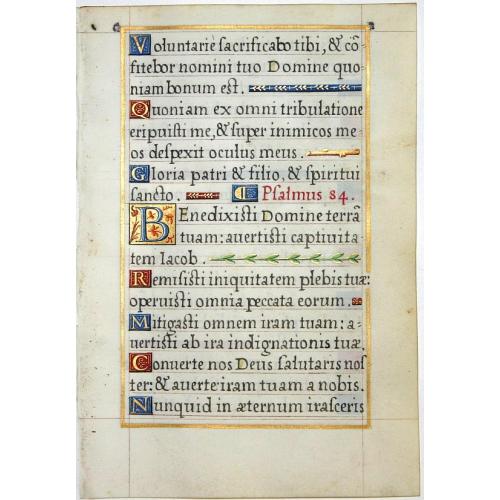 Voluntarie sacrificabo tibi, & cõ-
fitebor nomini tuo Domine quo-
niam bonum est.
Quoniam ex omni tribulatione
eripuisti me, & super inimicos me-
os despexit oculus meus.
Gloria patri & filio, & spiritui
sancto. Psalmus 84.
Benedixisti Domine terrã
tuam: avertisti captivita-
tem Iacob.
Remisisti iniquitatem plebis tuæ:
operuisti omnia peccata eorum.
Mitigasti omnem iram tuam: a-
vertisti ab ira indignationis tuæ.
Converte nos Deus salutaris nos-
ter: & averte iram tuam a nobis.
Nunquid in æternum irasceris